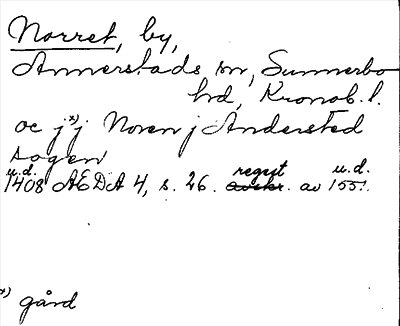 Norret, by,
Annerstads sn, Sunnerbo
hd, Kronob. l.
oc j x) j Noren j Andersted
sogen
u.d. regest u.d.
1408 AEDA 4, s. 26. avskr. av 1551.
x) gård